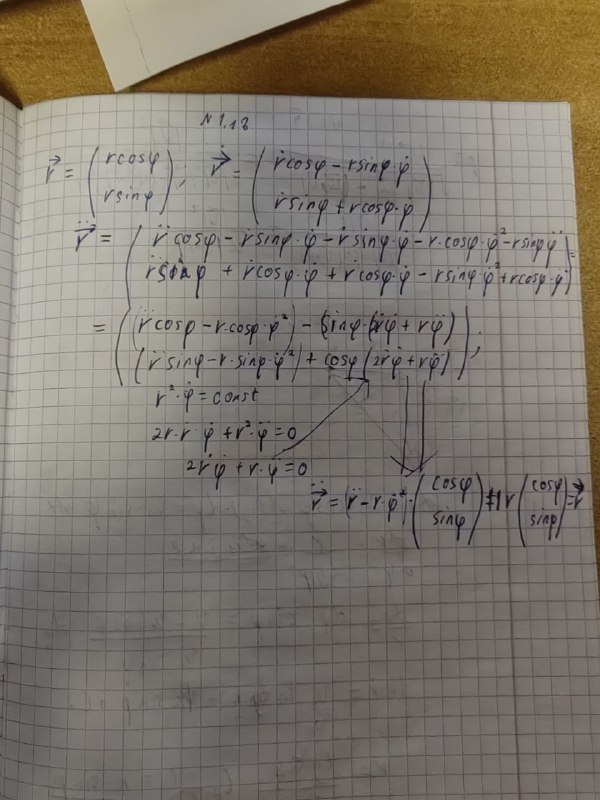 № 1.18
r⃗ = (r cosφ; r sinφ); r⃗̇ = (ṙcosφ − r sinφ·φ̇; ṙsinφ + r cosφ·φ̇)
r⃗̈ = (r̈ cosφ − ṙ sinφ·φ̇ − ṙ sinφ·φ̇ − r·cosφ·φ̇² − r sinφ φ̈; r̈ sinφ + ṙcosφ·φ̇ + ṙcosφ·φ̇ − r sinφ·φ̇² + r cosφ·φ̈) =
= ((r̈ cosφ − r·cosφ·φ̇²) − (sinφ·(2ṙφ̇ + rφ̈); (r̈ sinφ − r·sinφ·φ̇²) + cosφ(2ṙφ̇ + rφ̈));
r²·φ̇ = const
2r·ṙ·φ̇ + r²·φ̈ = 0
2ṙφ̇ + r·φ̈ = 0
r⃗̈ = (r̈ − r·φ̇²)·(cosφ; sinφ) ∦ r (cosφ; sinφ) = r⃗